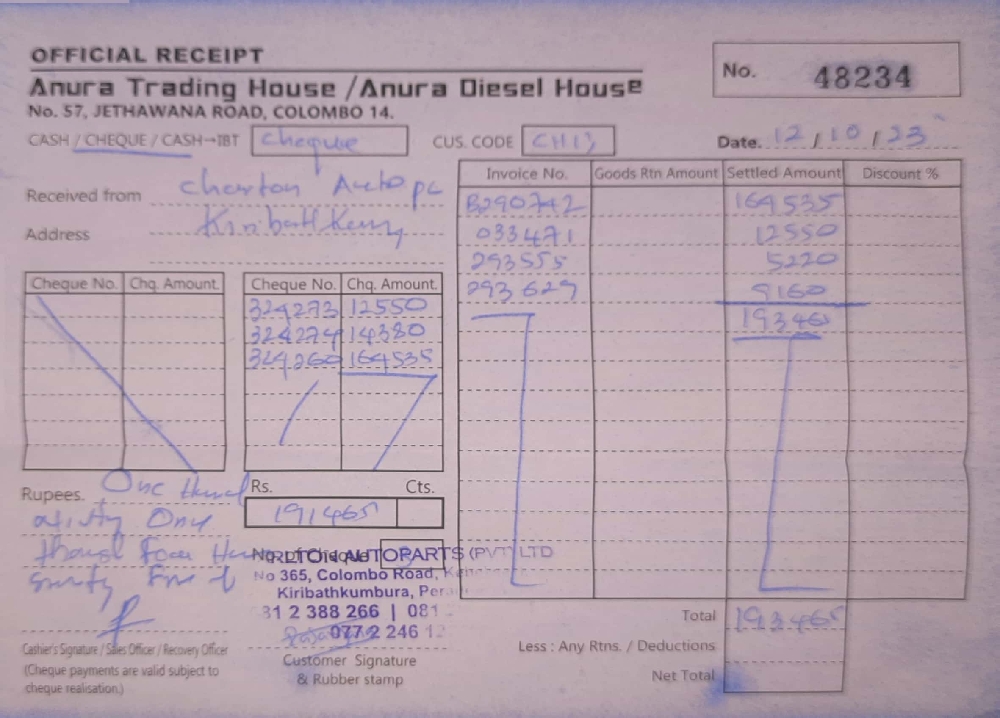 OFFICIAL RECEIPT
Anura Trading House / Anura Diesel House
No. 57, JETHAWANA ROAD, COLOMBO 14.
No. 48234
CASH / CHEQUE / CASH→IBT cheque
CUS. CODE CH13
Date. 12 / 10 / 23
Received from
Address
Invoice No. Goods Rtn Amount Settled Amount Discount %
B290742 164535
033471 12550
293555 5220
293629 9160
193465
Cheque No. Chq. Amount.
Cheque No. Chq. Amount.
324273 12550
324274 14380
324260 164535
Rupees. One
One
Rs. Cts.
191465
AUTOPARTS (PVT) LTD
No 365, Colombo Road,
Kiribathkumbura,
81 2 388 266 | 081
077 2 246 12
Customer Signature
& Rubber stamp
Cashier's Signature / Sales Officer / Recovery Officer
(Cheque payments are valid subject to
cheque realisation.)
Total 193465
Less : Any Rtns. / Deductions
Net Total